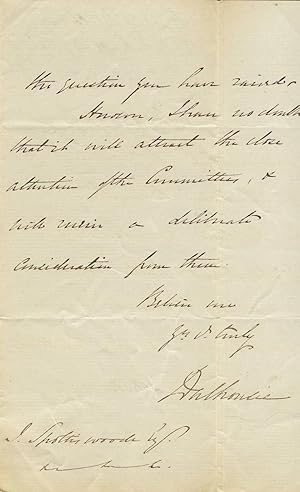 the question you have raised &
I have no doubt
that it will attract the close
attention of the Committee, &
will receive a deliberate
consideration from them.
Believe me
Yrs v. truly
Dalhousie
J. Spottiswoode Esq.